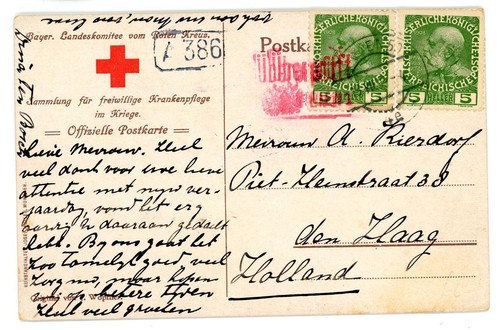 Bayer. Landeskomitee vom Roten Kreuz.
A 386
Postka
Sammlung für freiwillige Krankenpflege
im Kriege.
Offizielle Postkarte
KAISERLICHE KÖNIGLICHE
ÖSTERREICHISCHE POST
5 HELLER 5
5 HELLER 5
Lieve Mevrouw. Heel
veel dank voor uwe lieve
attentie met mijn ver-
jaardag, vond het erg
aardig U daaraan gedacht
hebt. Bij ons gaat het
zoo tamelijk goed, veel
zorg nog, maar hopen
betere tijden
Heel veel groeten
Mevrouw A. Riersdorf
Piet-Heinstraat 38
den Haag
Holland